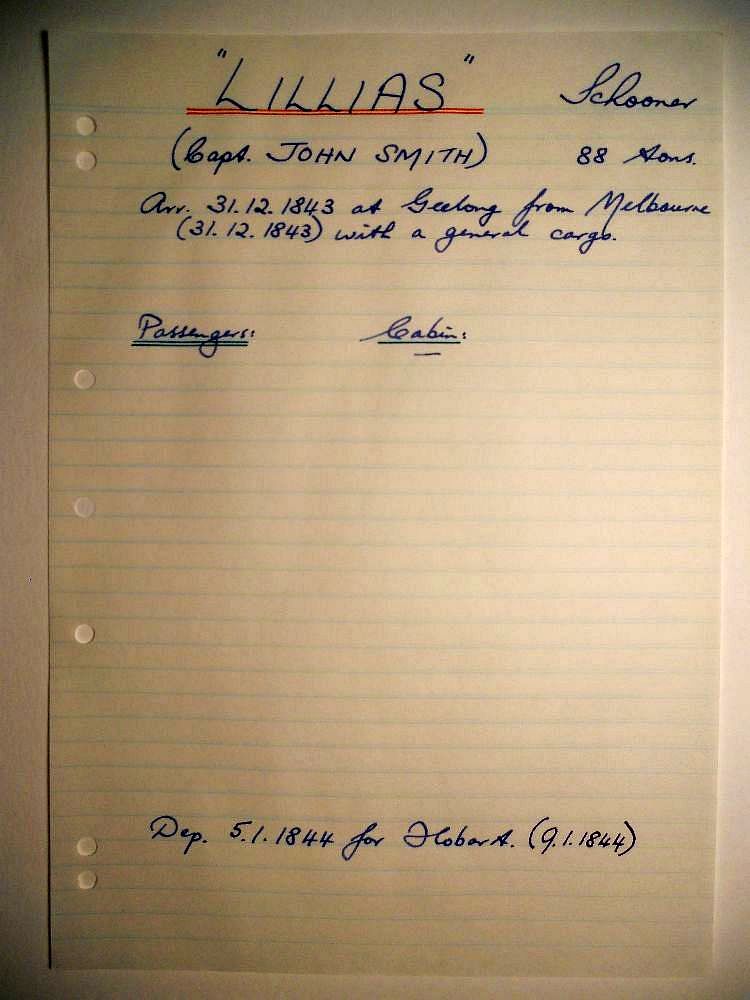 "LILLIAS" Schooner
(Capt. JOHN SMITH) 88 tons.
Arr. 31.12.1843 at Geelong from Melbourne
(31.12.1843) with a general cargo.
Passengers: Cabin:
—
Dep. 5.1.1844 for Hobart. (9.1.1844)